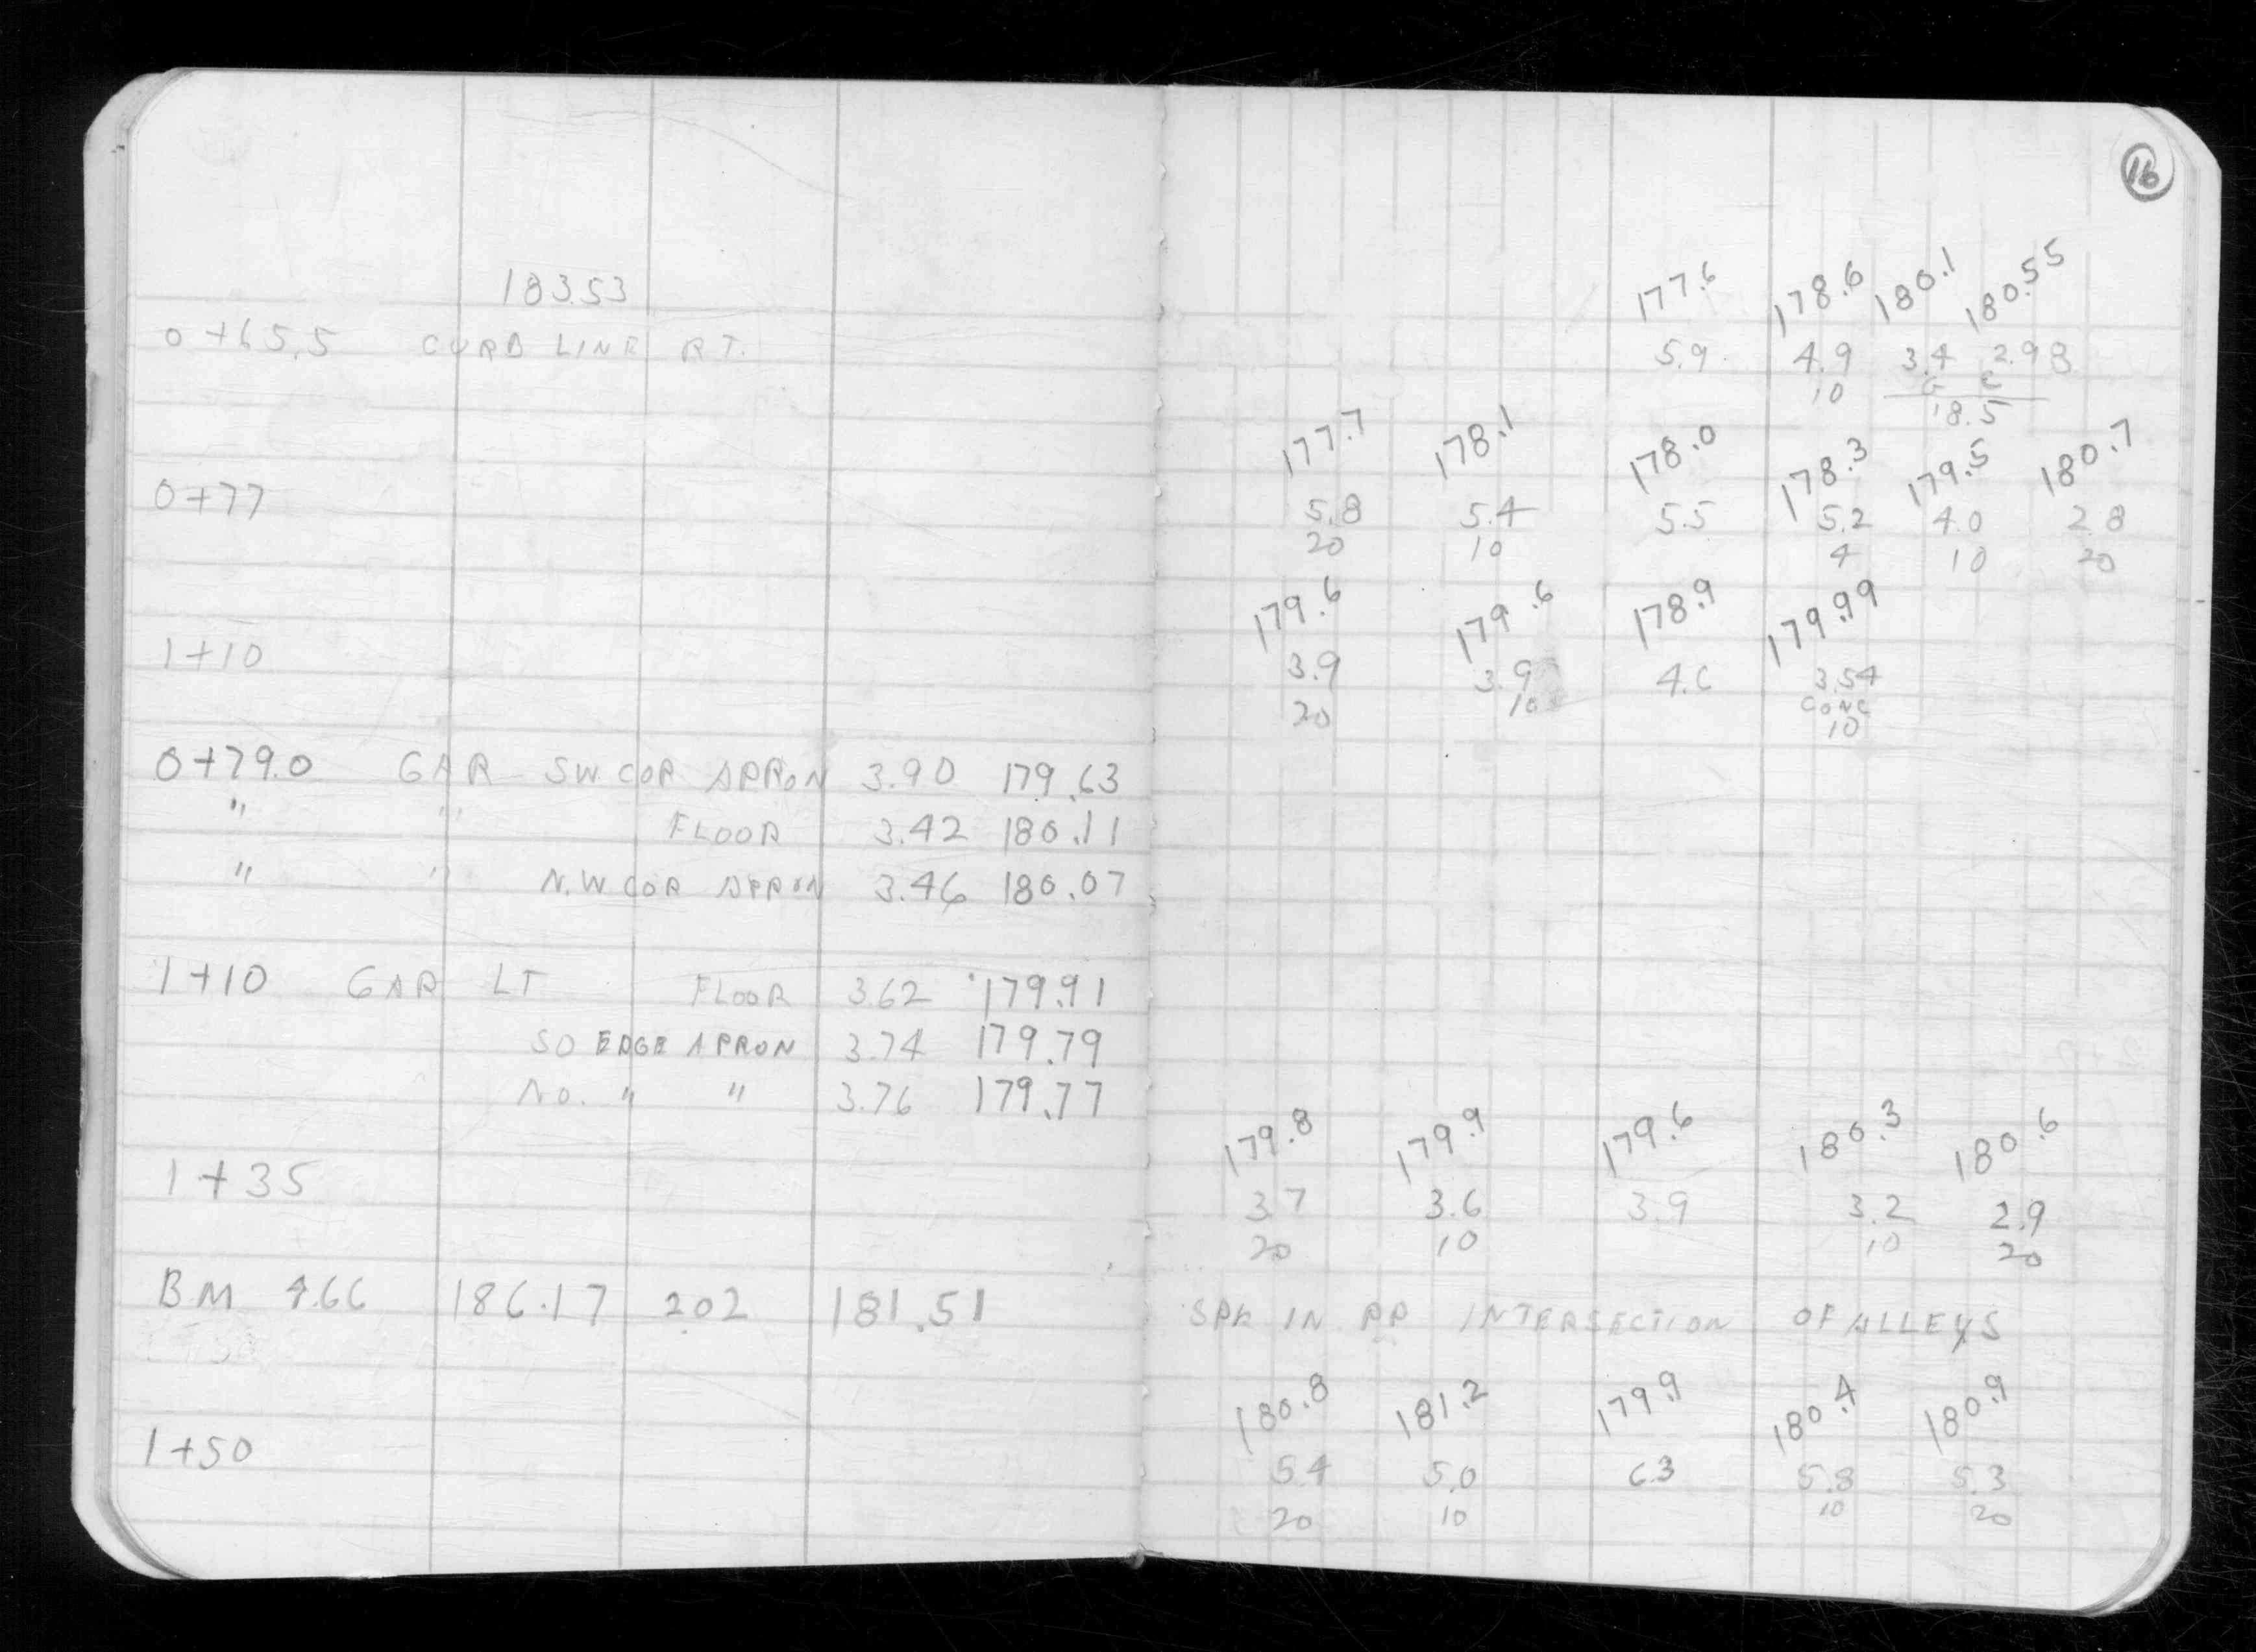 16
183.53
177.6 178.6 180.1 180.55
0+65.5 CURB LINE RT. 5.9 4.9 3.4 2.98
10 G C
18.5
177.7 178.1 178.0 178.3 179.5 180.7
0+77 5.8 5.4 5.5 5.2 4.0 2.8
20 10 4 10 20
179.6 179.6 178.9 179.99
1+10 3.9 3.9 4.6 3.54
20 10 CONC
10
0+79.0 GAR SW COR APRON 3.90 179.63
" " FLOOR 3.42 180.11
" " N.W COR APRON 3.46 180.07
1+10 GAR LT FLOOR 3.62 179.91
SO EDGE APRON 3.74 179.79
NO. " " 3.76 179.77
179.8 179.9 179.6 180.3 180.6
1+35 3.7 3.6 3.9 3.2 2.9
20 10 10 20
BM 4.66 186.17 2.02 181.51 SPK IN PP INTERSECTION OF ALLEYS
180.8 181.2 179.9 180.4 180.9
1+50 5.4 5.0 6.3 5.8 5.3
20 10 10 20